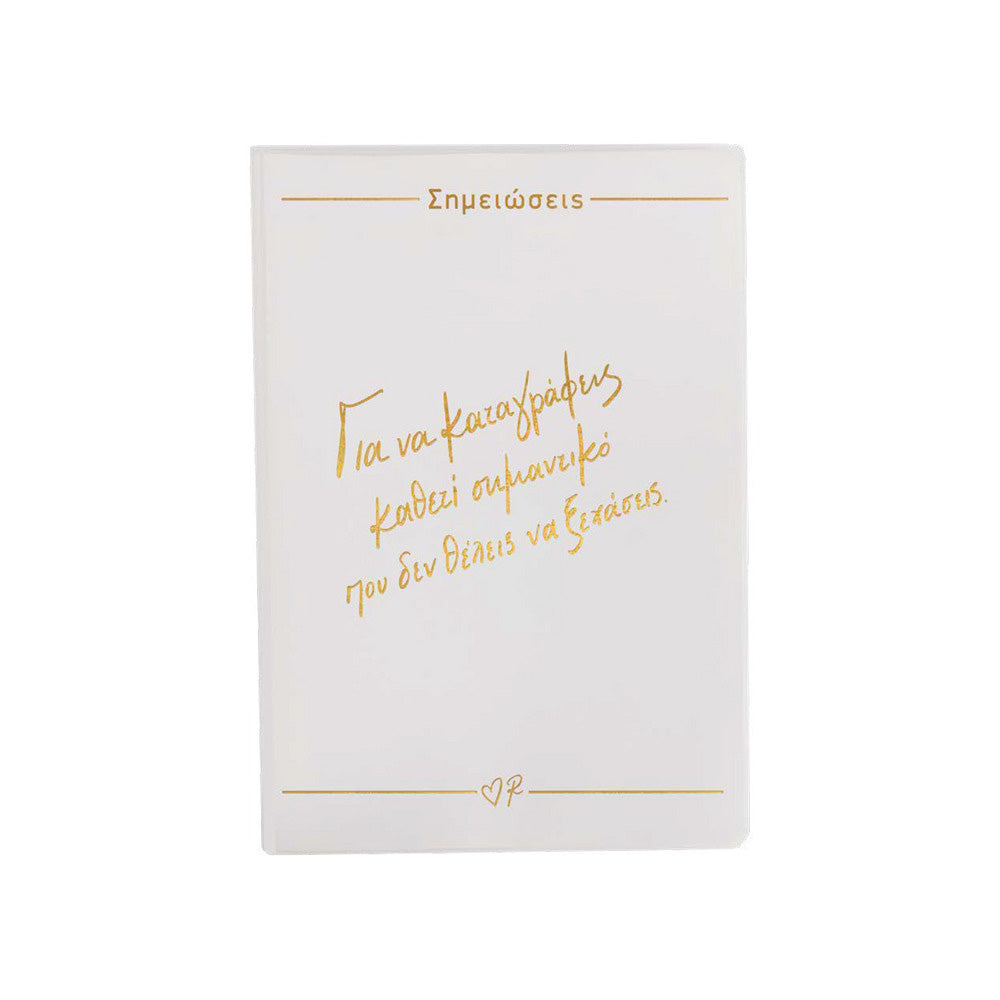 Σημειώσεις
Για να καταγράφεις
καθετί σημαντικό
που δεν θέλεις να ξεχάσεις.
R